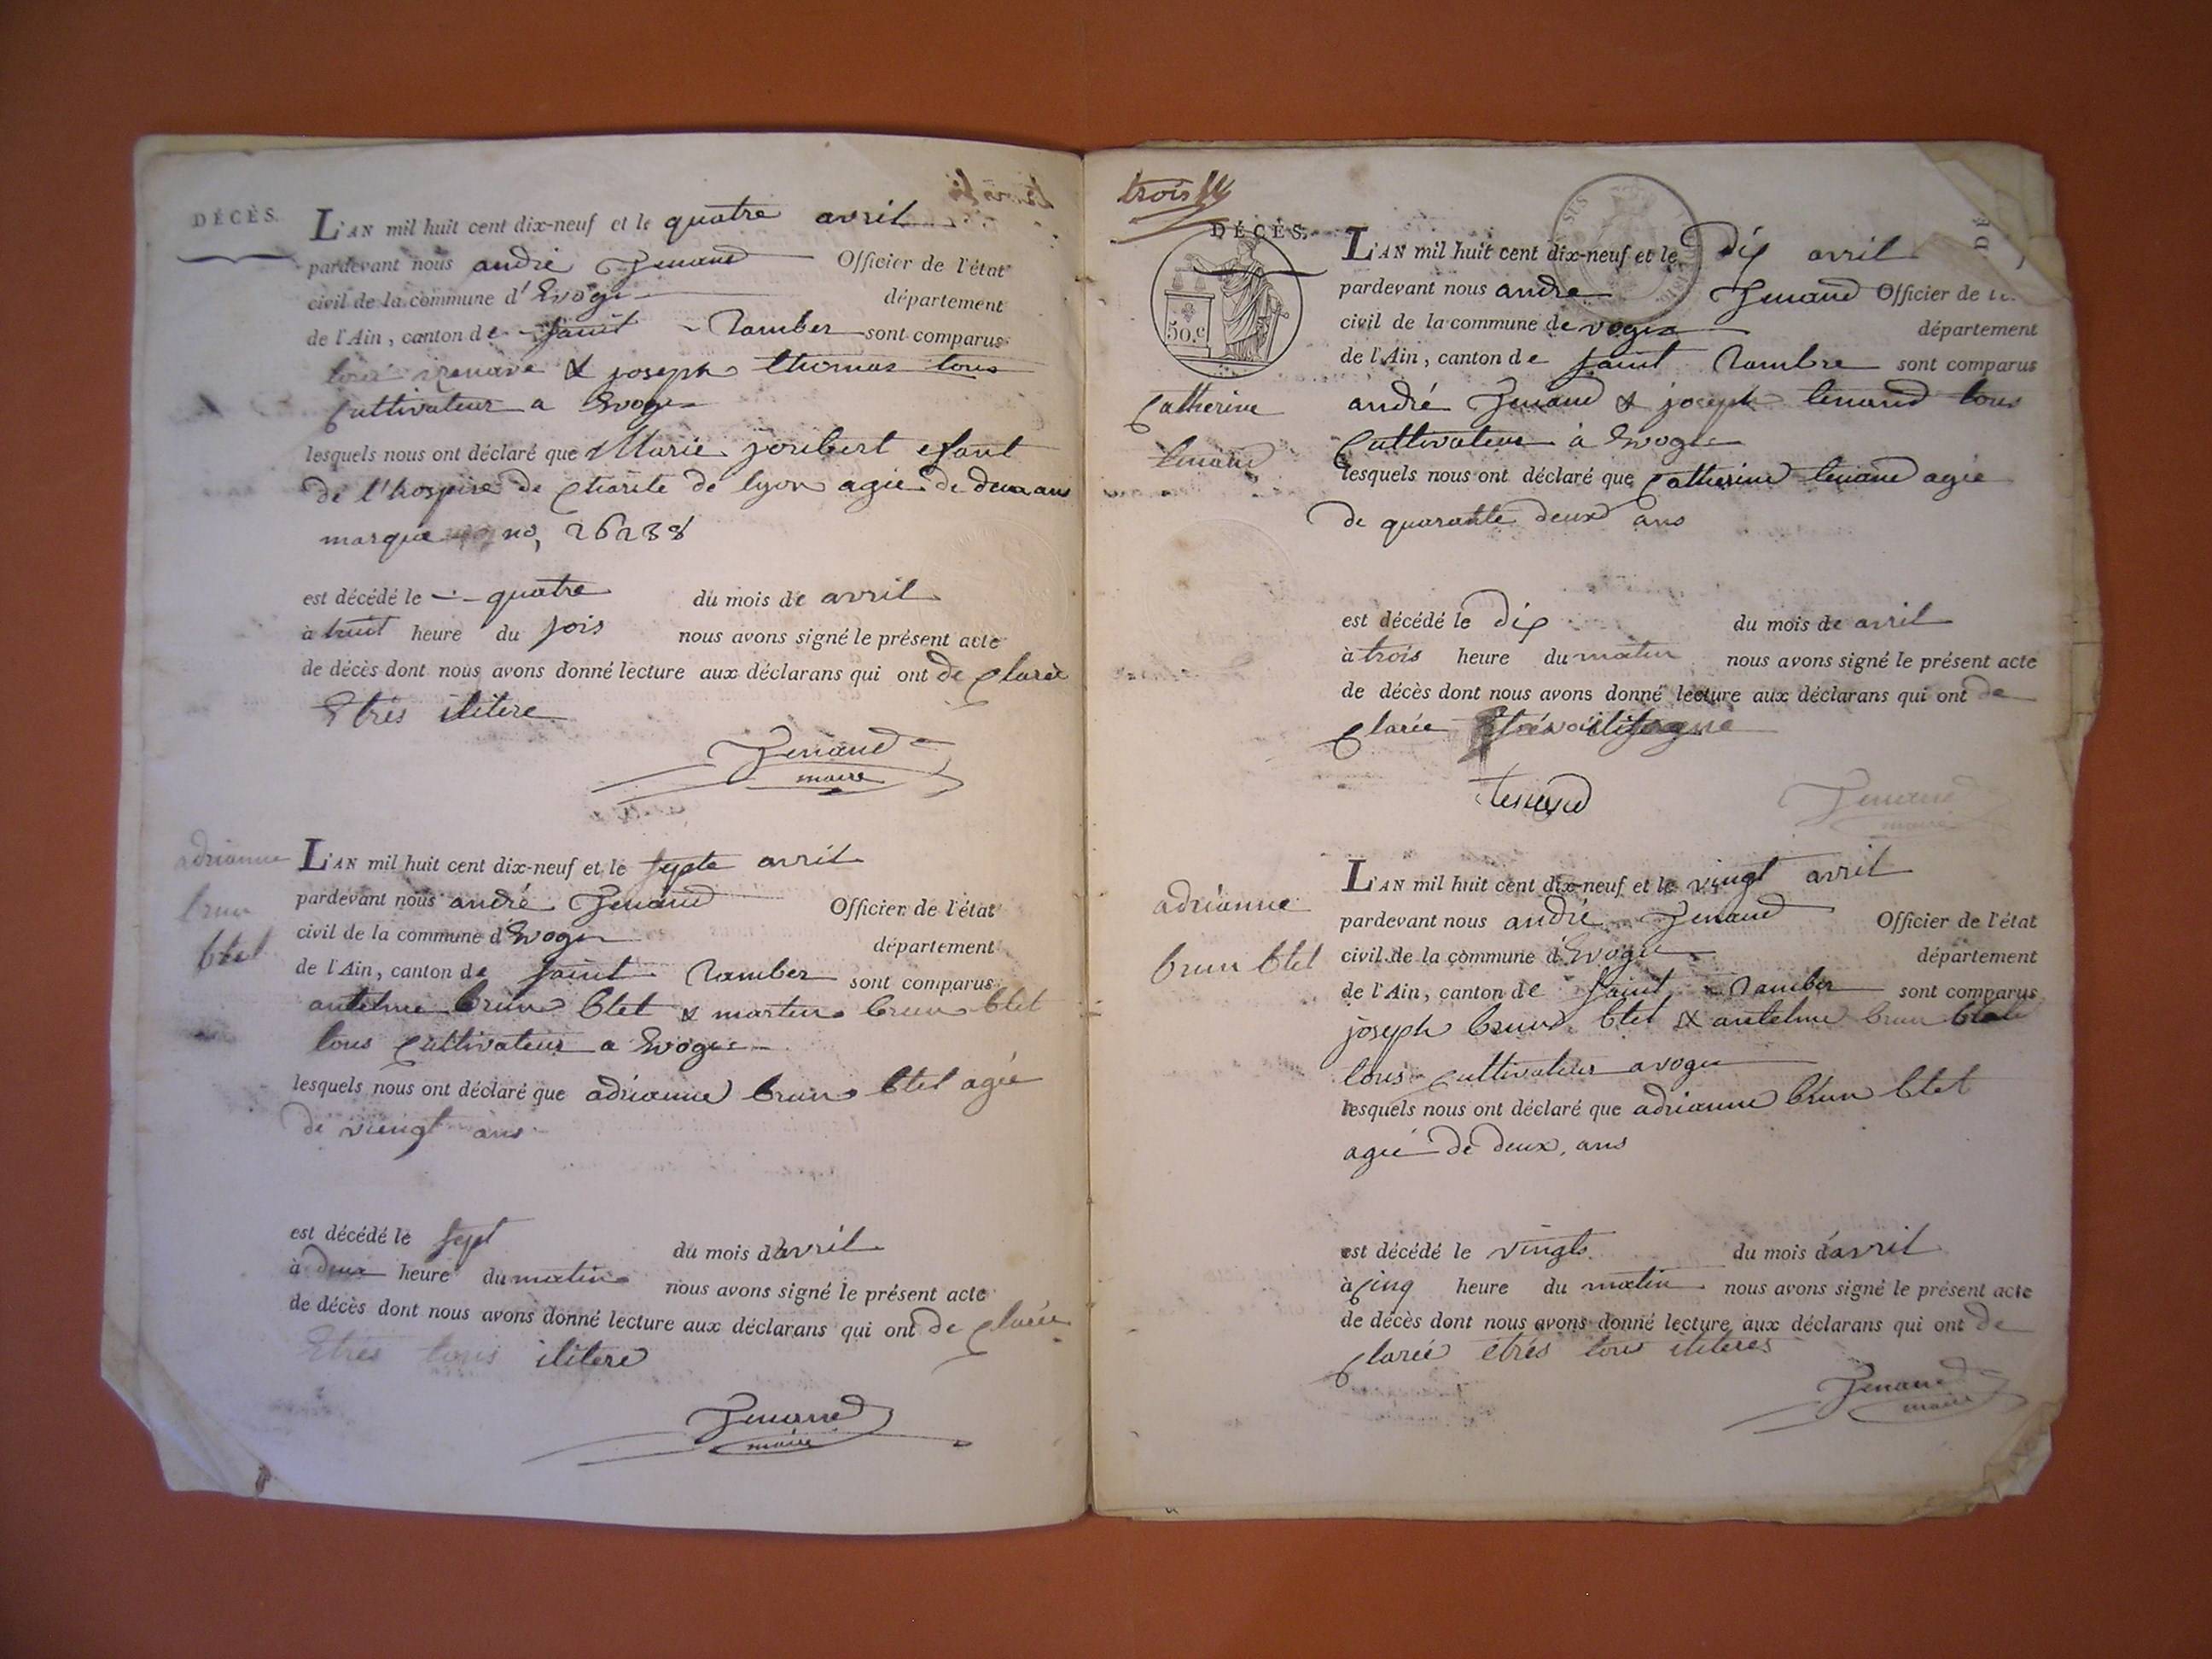 DÉCÈS.
L'AN mil huit cent dix-neuf et le quatre avril
pardevant nous andré Jenand Officier de l'état
civil de la commune d'Evoge département
de l'Ain, canton de saint Ramber sont comparus
& joseph thomas tous
cultivateur a Evoge
lesquels nous ont déclaré que Marie joribert efant
de l'hospise de Charite de lyon agée de deux ans
marque no,
est décédé le quatre du mois de avril
à huit heure du sois nous avons signé le présent acte
de décès dont nous avons donné lecture aux déclarans qui ont de clarée
Etrés ilitere
Jenand
maire
adrianne
brun
btet
L'AN mil huit cent dix-neuf et le septe avril
pardevant nous andré Jenand Officier de l'état
civil de la commune d'Evoge département
de l'Ain, canton de saint Ramber sont comparus
antelme brun btet & martin brun btet
tous cultivateur a Evoge
lesquels nous ont déclaré que adrianne brun btet agée
de viengt ans
est décédé le sept du mois d'avril
à deux heure du matin nous avons signé le présent acte
de décès dont nous avons donné lecture aux déclarans qui ont de clarée
Etres tous ilitere
Jenand
maire
trois
DÉCÈS.
50.c
catherine
tenand
L'AN mil huit cent dix-neuf et le dix avril
pardevant nous andre Jenand Officier de
civil de la commune de voges département
de l'Ain, canton de saint Rambre sont comparus
andré Jenand & joseph tenand tous
cultivateur à Evoge
lesquels nous ont déclaré que catherine tenand agée
de quarante deux ans
est décédé le dix du mois de avril
à trois heure du matin nous avons signé le présent acte
de décès dont nous avons donné lecture aux déclarans qui ont de
clarée
tenand
Jenand
maire
adrianne
brun btet
L'AN mil huit cent dix-neuf et le vingt avril
pardevant nous andré Jenand Officier de l'état
civil de la commune d'Evoge département
de l'Ain, canton de saint Ramber sont comparus
joseph brun btet & antelme brun btet
tous cultivateur a voge
lesquels nous ont déclaré que adrianne brun btet
agée de deux, ans
est décédé le vingts du mois d'avril
à cinq heure du matin nous avons signé le présent acte
de décès dont nous avons donné lecture aux déclarans qui ont de
clarée etrés tous iliteres
Jenand
maire